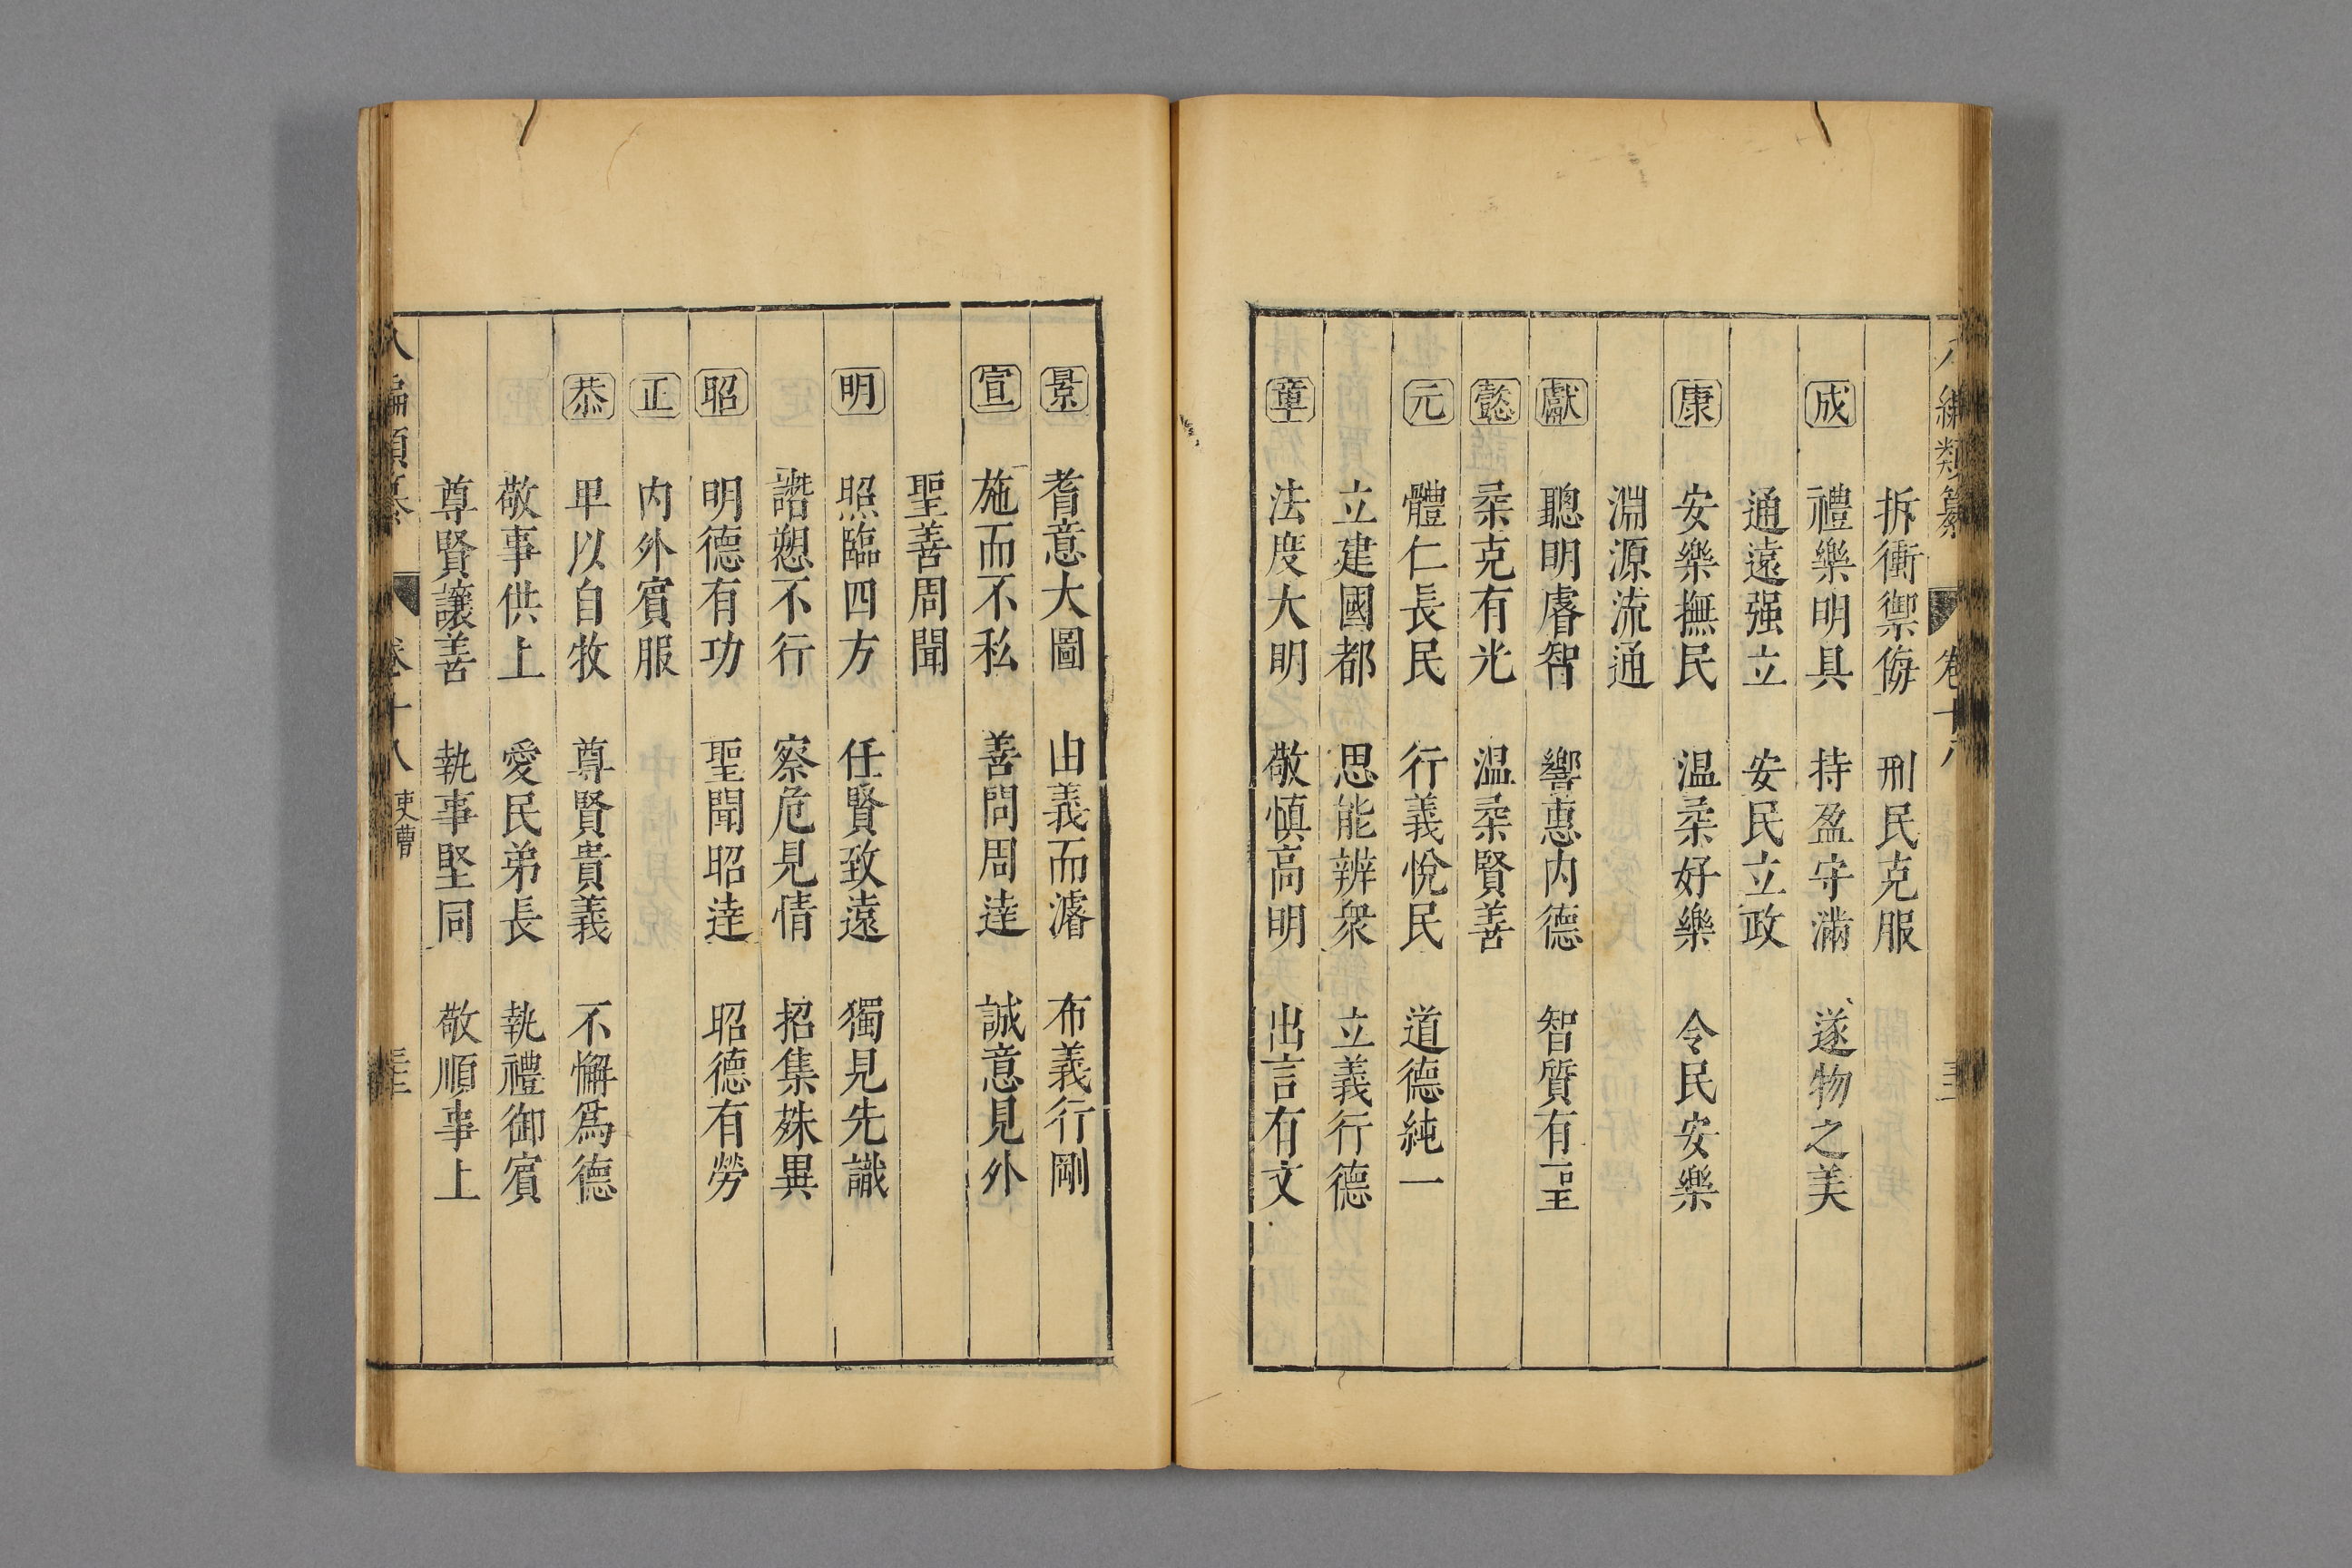 八編類纂 卷十八
拆衝禦侮 刑民克服
成 禮樂明具 持盈守滿 遂物之美
通遠强立 安民立政
康 安樂撫民 温柔好樂 令民安樂
淵源流通
獻 聰明睿智 嚮惠内德 智質有聖
懿 柔克有光 温柔賢善
元 體仁長民 行義悅民 道德純一
立建國都 思能辨衆 立義行德
章 法度大明 敬慎高明 出言有文
景 耆意大圖 由義而濬 布義行剛
宣 施而不私 善問周達 誠意見外
聖善周聞
明 照臨四方 任賢致遠 獨見先識
譖愬不行 察危見情 招集殊異
昭 明德有功 聖聞昭達 昭德有勞
正 内外賓服
恭 卑以自牧 尊賢貴義 不懈爲德
敬事供上 愛民弟長 執禮御賓
尊賢讓善 執事堅同 敬順事上
八編類纂 卷十八 吏曹